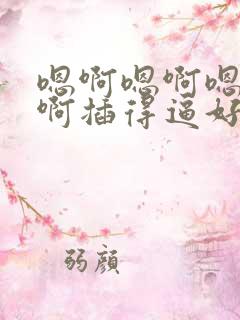 嗯啊嗯啊嗯
啊插得逼好
弱顔